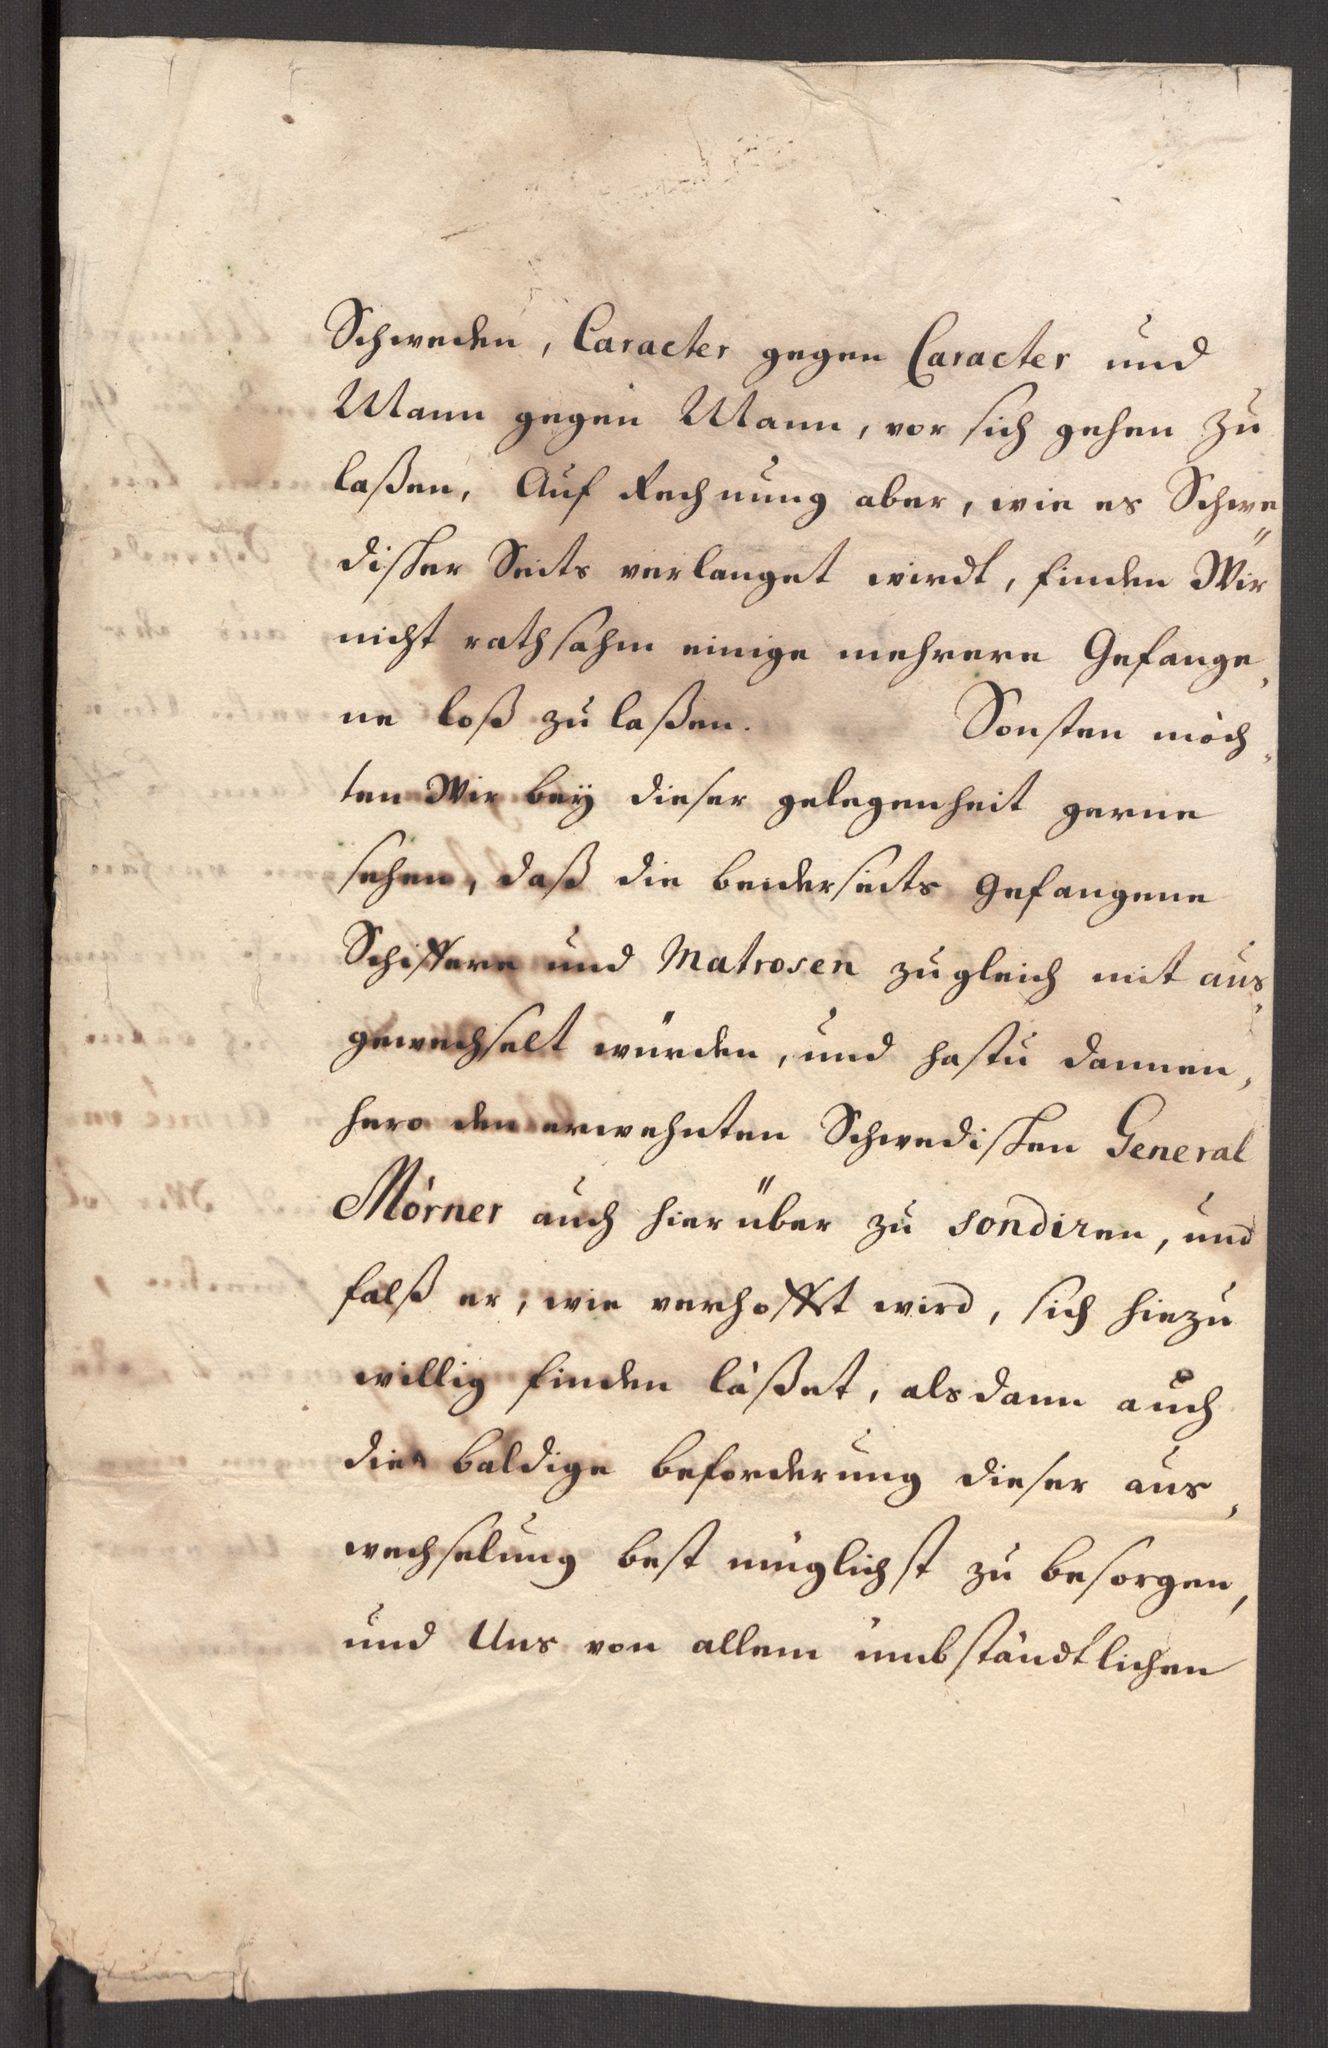 Schweden, Caracter gegen Caracter und
Mann gegen Mann, vor sich gehen zu
laßen, Auf Rechnung aber, wie es Schwe⸗
discher Seits verlanget wirdt, finden Wir
nicht rathsahm einige mehrere Gefange⸗
ne loß zu laßen. Sonsten möch⸗
ten Wir bey dieser gelegenheit gerne
sehen, daß die beederseits Gefangene
Schiffere und Matrosen zugleich mit aus⸗
gewechselt würden, und hastu dannen⸗
hero den erwehnten Schwedischen General
Mörner auch hierüber zu sondiren, und
falß er, wie verhofft wird, sich hiezu
willig finden läßet, alsdann auch
die baldige beforderung dieser aus⸗
wechselung best müglichst zu besorgen,
und Uns von allem umbständtlichen